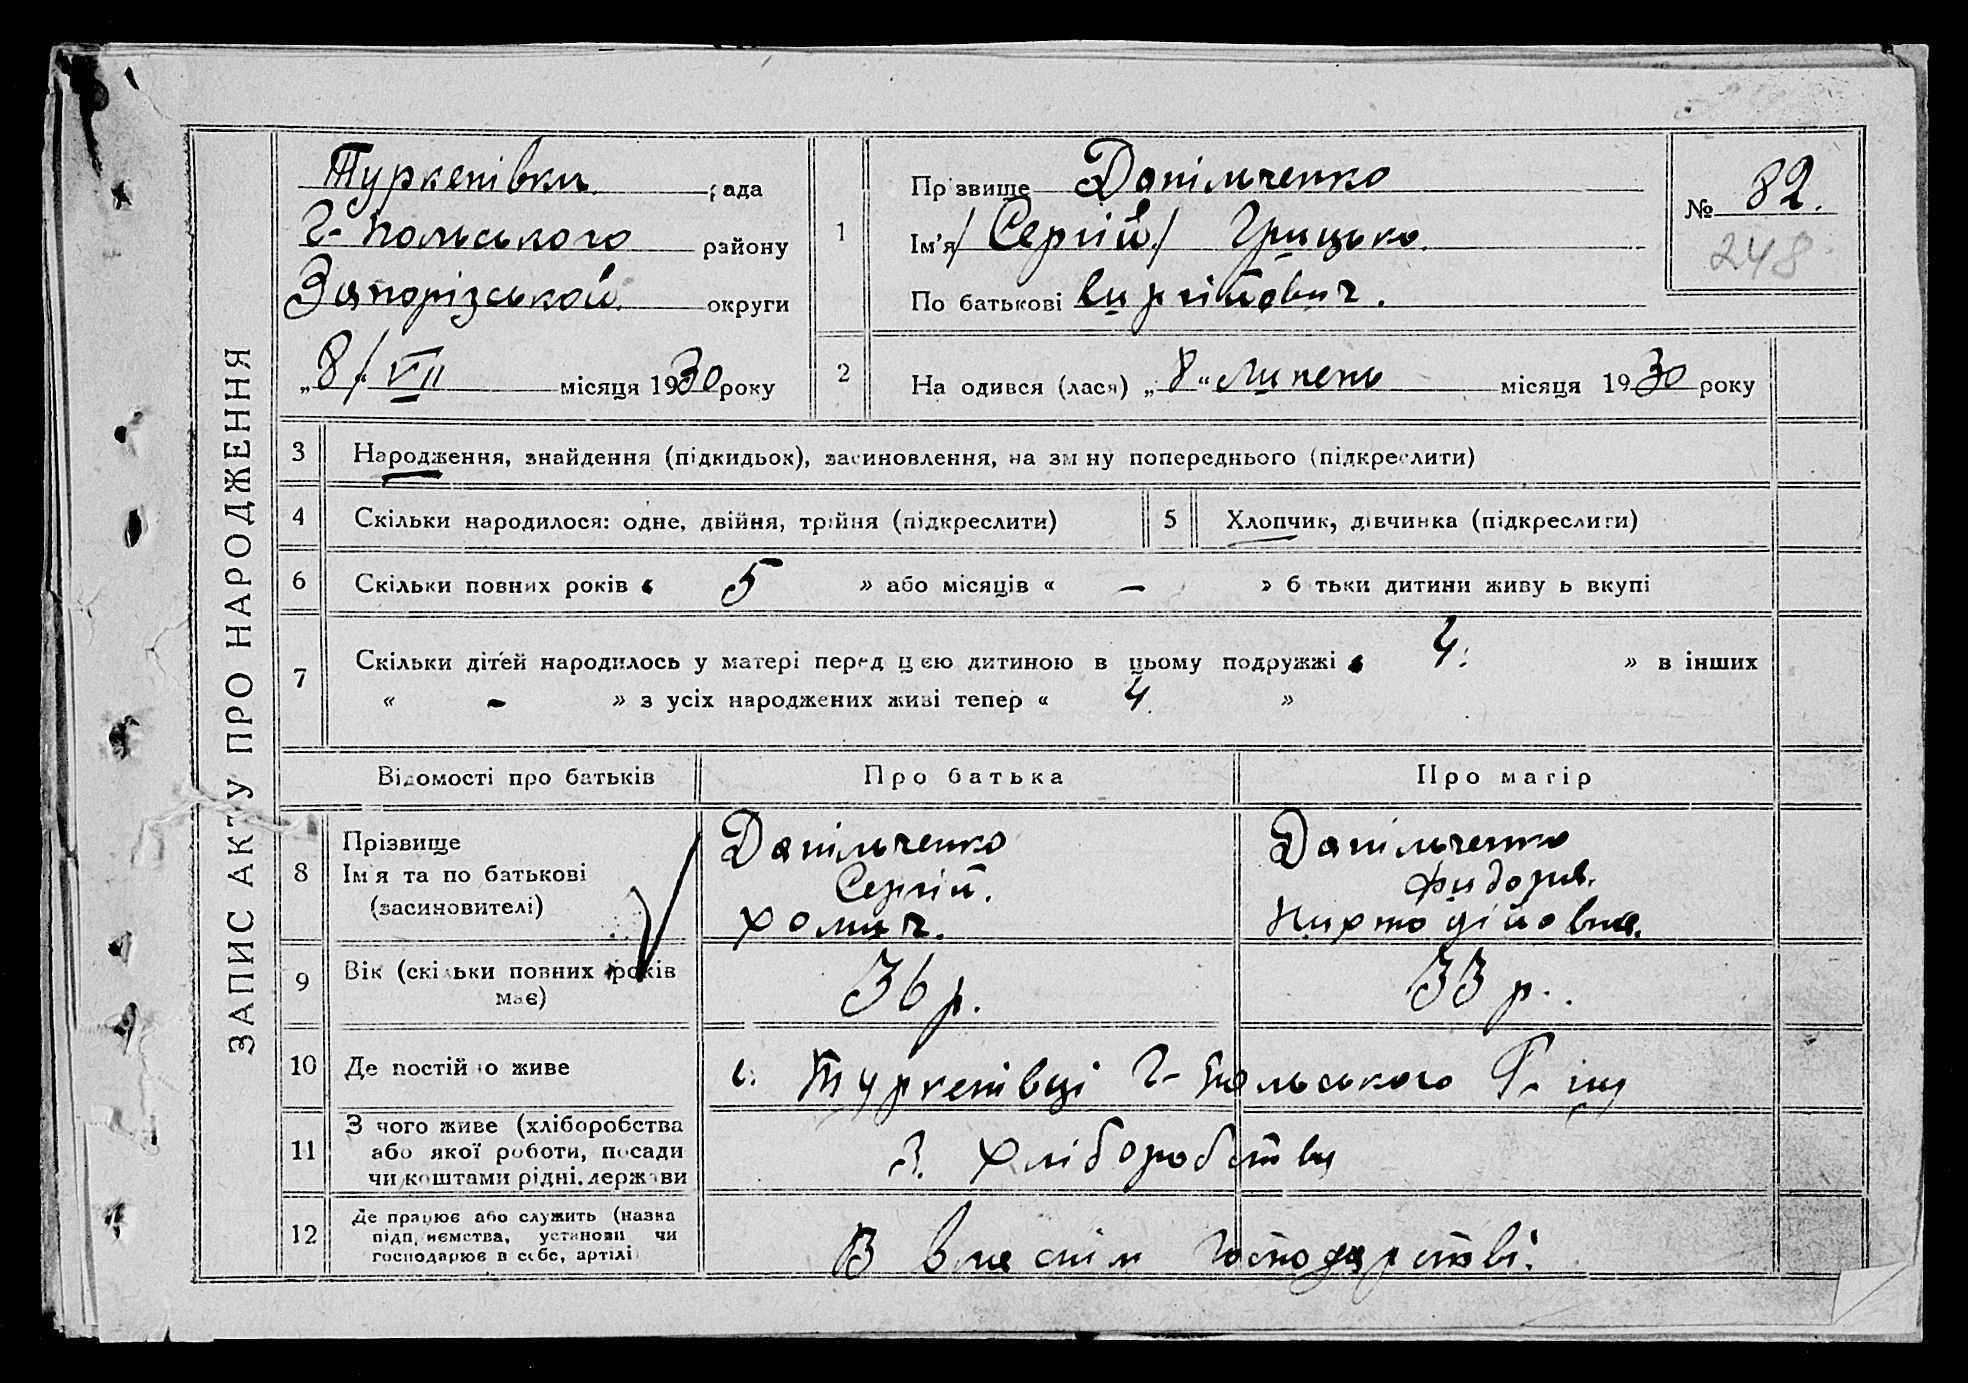 ЗАПИС АКТУ ПРО НАРОДЖЕННЯ
Туркенівка рада
Г-Польського району
Запорізської округи
„8/“ VII місяця 1930 року
1
Прізвище Данільченко
Ім'я /Сергій/ Грицько.
По батькові
№ 82.
248
2
Народився (лася) „8“ Липень місяця 1930 року
3 Народження, знайдення (підкидьок), засиновлення, на зміну попереднього (підкреслити)
4 Скільки народилося: одне, двійня, трійня (підкреслити)
5 Хлопчик, дівчинка (підкреслити)
6 Скільки повних років « 5 » або місяців « – » батьки дитини живуть вкупі
7 Скільки дітей народилось у матері перед цією дитиною в цьому подружжі « 4. » в інших
« – » з усіх народжених живі тепер « 4. »
Відомості про батьків Про батька Про матір
8 Прізвище
Ім'я та по батькові
(засиновителі)
Данільченко
Сергій.
Хомич.
Данільченко
9 Вік (скільки повних років
має)
36 р.
33 р.
10 Де постійно живе
с. Туркенівці Г-Польського Р-ну
11 З чого живе (хліборобства
або якої роботи, посади
чи коштами рідні, держави
З. Хліборобства
12 Де працює або служить (назва
підприємства, установи чи
господарює в себе, артілі
В власнім господарстві.